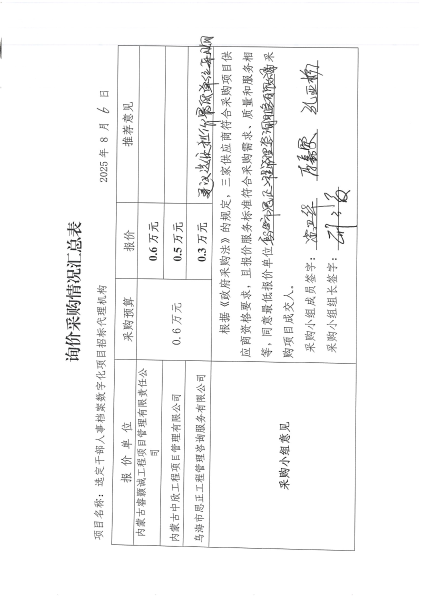 询价采购情况汇总表
项目名称：选定干部人事档案数字化项目招标代理机构
2025年 8 月 6 日
报 价 单 位
采购预算
报价
推荐意见
内蒙古睿颢诚工程项目管理有限责任公
司
0.6 万元
0.6 万元
内蒙古中欣工程项目管理有限公司
0.5 万元
乌海市思正工程管理咨询服务有限公司
0.3 万元
采购小组意见
根据《政府采购法》的规定，三家供应商符合采购项目供
应商资格要求，且报价服务标准符合采购需求、质量和服务相
等，同意最低报价单位
采
购项目成交人。
采购小组成员签字：
采购小组组长签字：